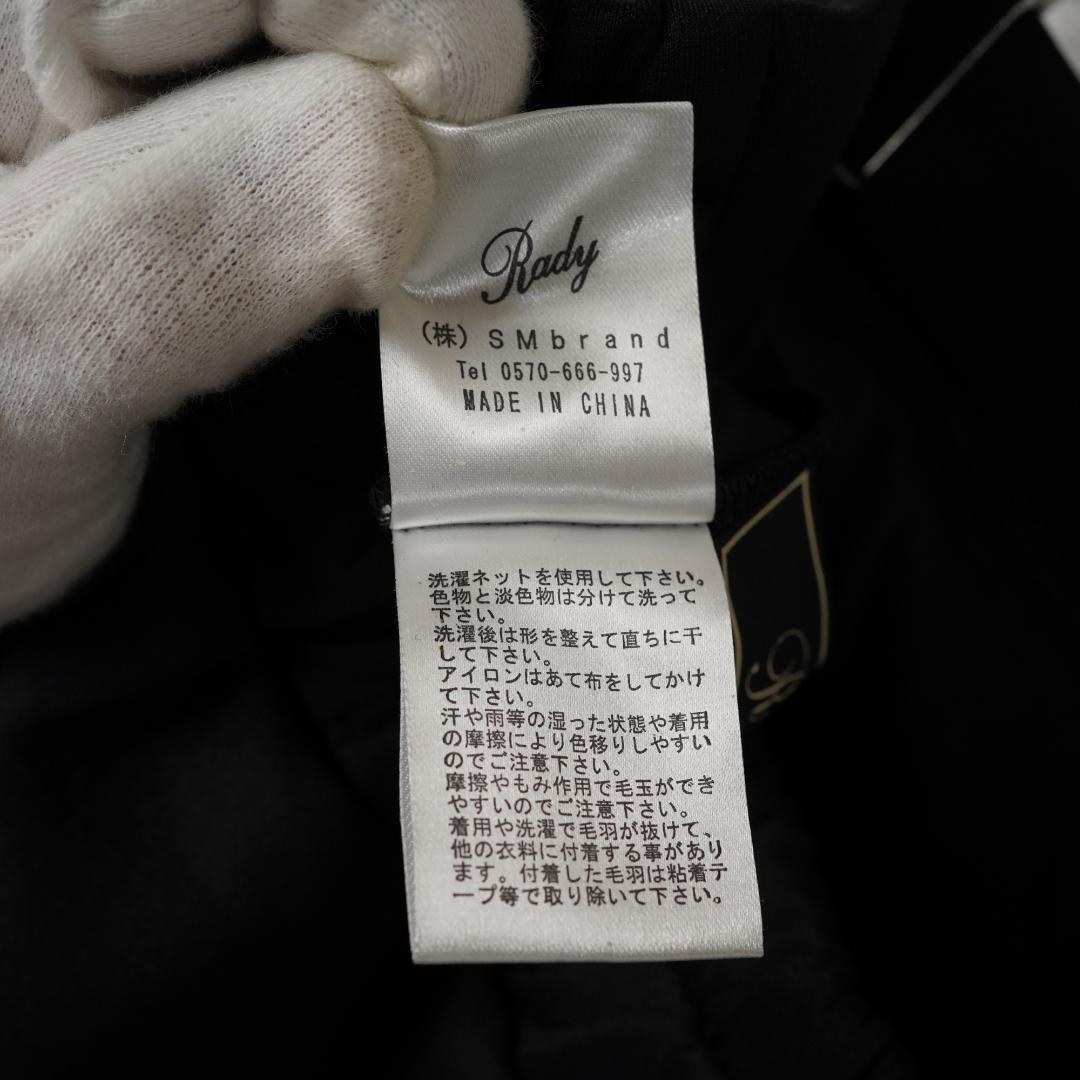 Rady
（株）ＳＭｂｒａｎｄ
Tel 0570-666-997
MADE IN CHINA
洗濯ネットを使用して下さい。
色物と淡色物は分けて洗って
下さい。
洗濯後は形を整えて直ちに干
して下さい。
アイロンはあて布をしてかけ
て下さい。
汗や雨等の湿った状態や着用
の摩擦により色移りしやすい
のでご注意下さい。
摩擦やもみ作用で毛玉ができ
やすいのでご注意下さい。
着用や洗濯で毛羽が抜けて、
他の衣料に付着する事があり
ます。付着した毛羽は粘着テ
ープ等で取り除いて下さい。